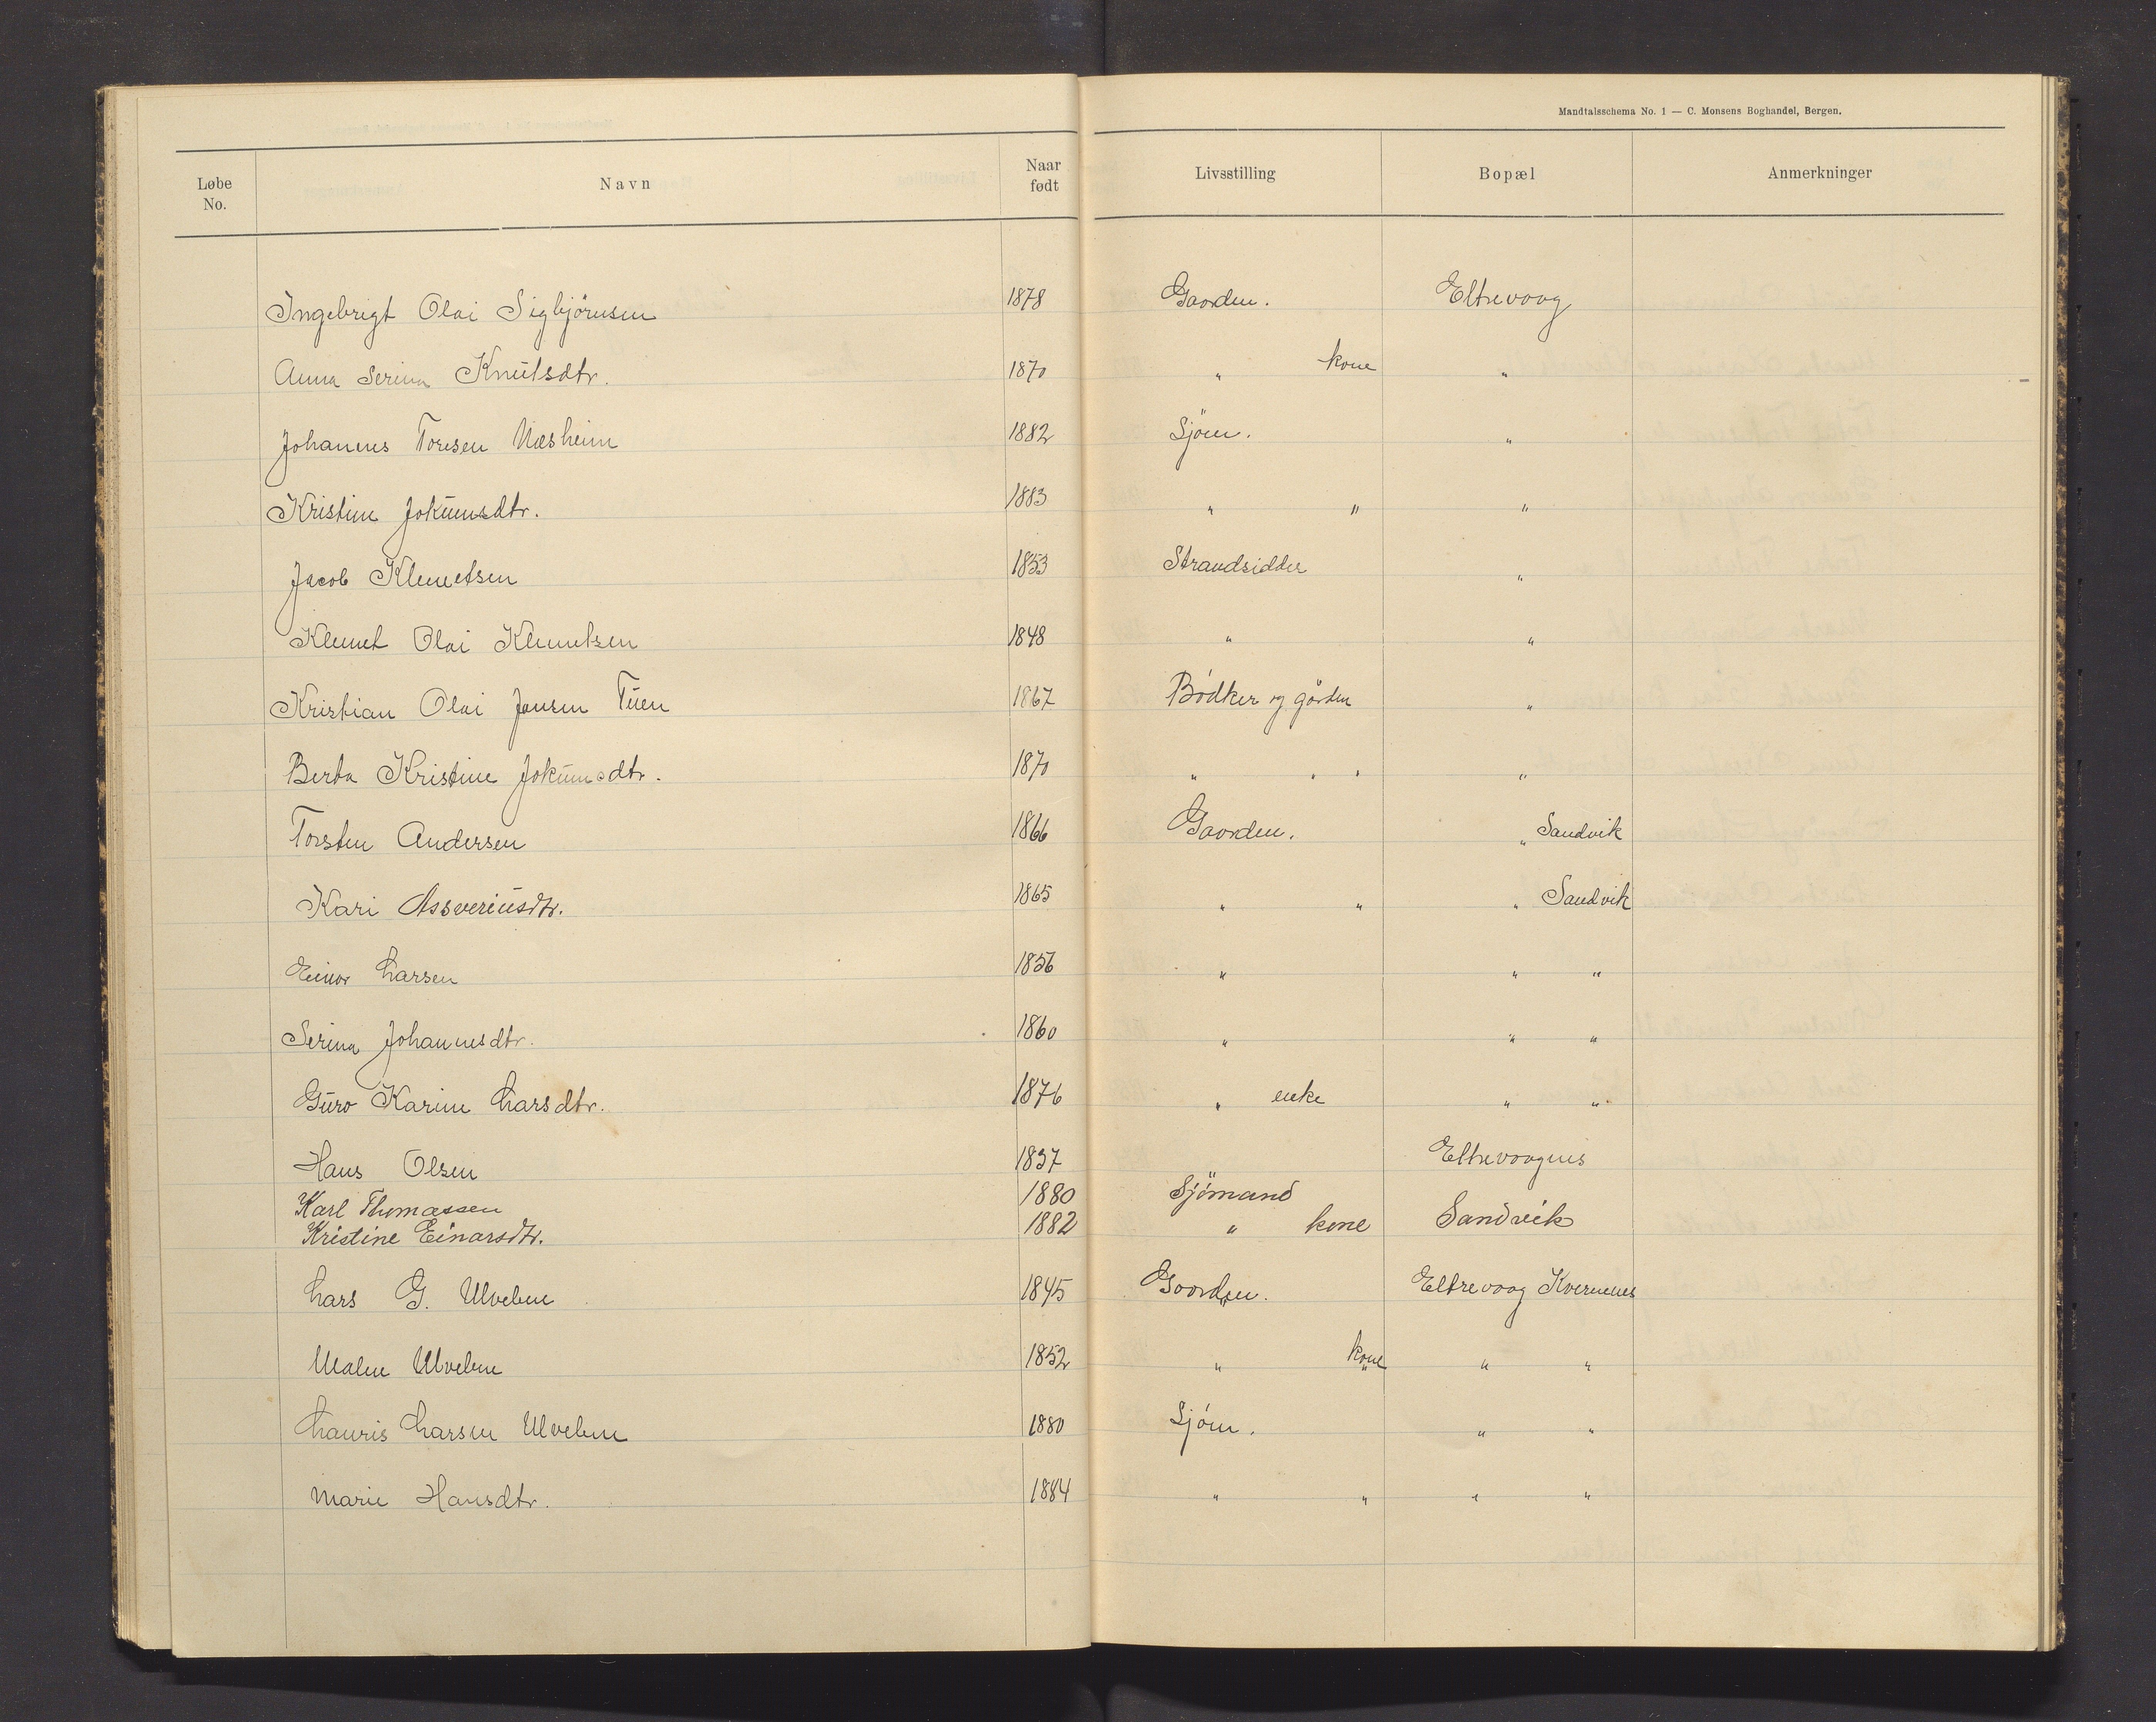 Mandtalsschema No. 1 — C. Monsens Boghandel, Bergen.
Løbe No. Navn Naar født Livsstilling Bopæl Anmerkninger
Ingebrigt Olai Sigbjørnsen 1878 Gaarden. Eltrevaag
Anna Serina Knutsdtr. 1870 " kone "
Johannes Toresen Næsheim 1882 Sjöm. "
Kristine Jokumsdtr. 1883 " " "
Jacob Klemetsen 1853 Strandsidder "
Klemet Olai Klemetsen 1848 " "
Kristian Olai Jensen Tuen 1867 Bödker og gården "
Berta Kristine Jokumsdtr. 1870 " " " "
Torsten Andersen 1866 Gaarden. " Sandvik
Kari Assveriusdtr. 1865 " " " Sandvik
Einar Larsen 1856 " " "
Serina Johannesdtr. 1860 " " "
Guro Karine Larsdtr. 1876 " enke " "
Hans Olsen 1837 Eltrevaagnes
Karl Thomassen 1880 Sjömand
Kristine Einarsdtr. 1882 " kone Sandvik
Lars G. Ulveben 1845 Gaarden. Eltrevaag Kvernenes
Malen Ulveben 1852 " kone " "
Lauris Larsen Ulveben 1880 Sjöm. " "
Marie Hansdtr. 1884 " " " "